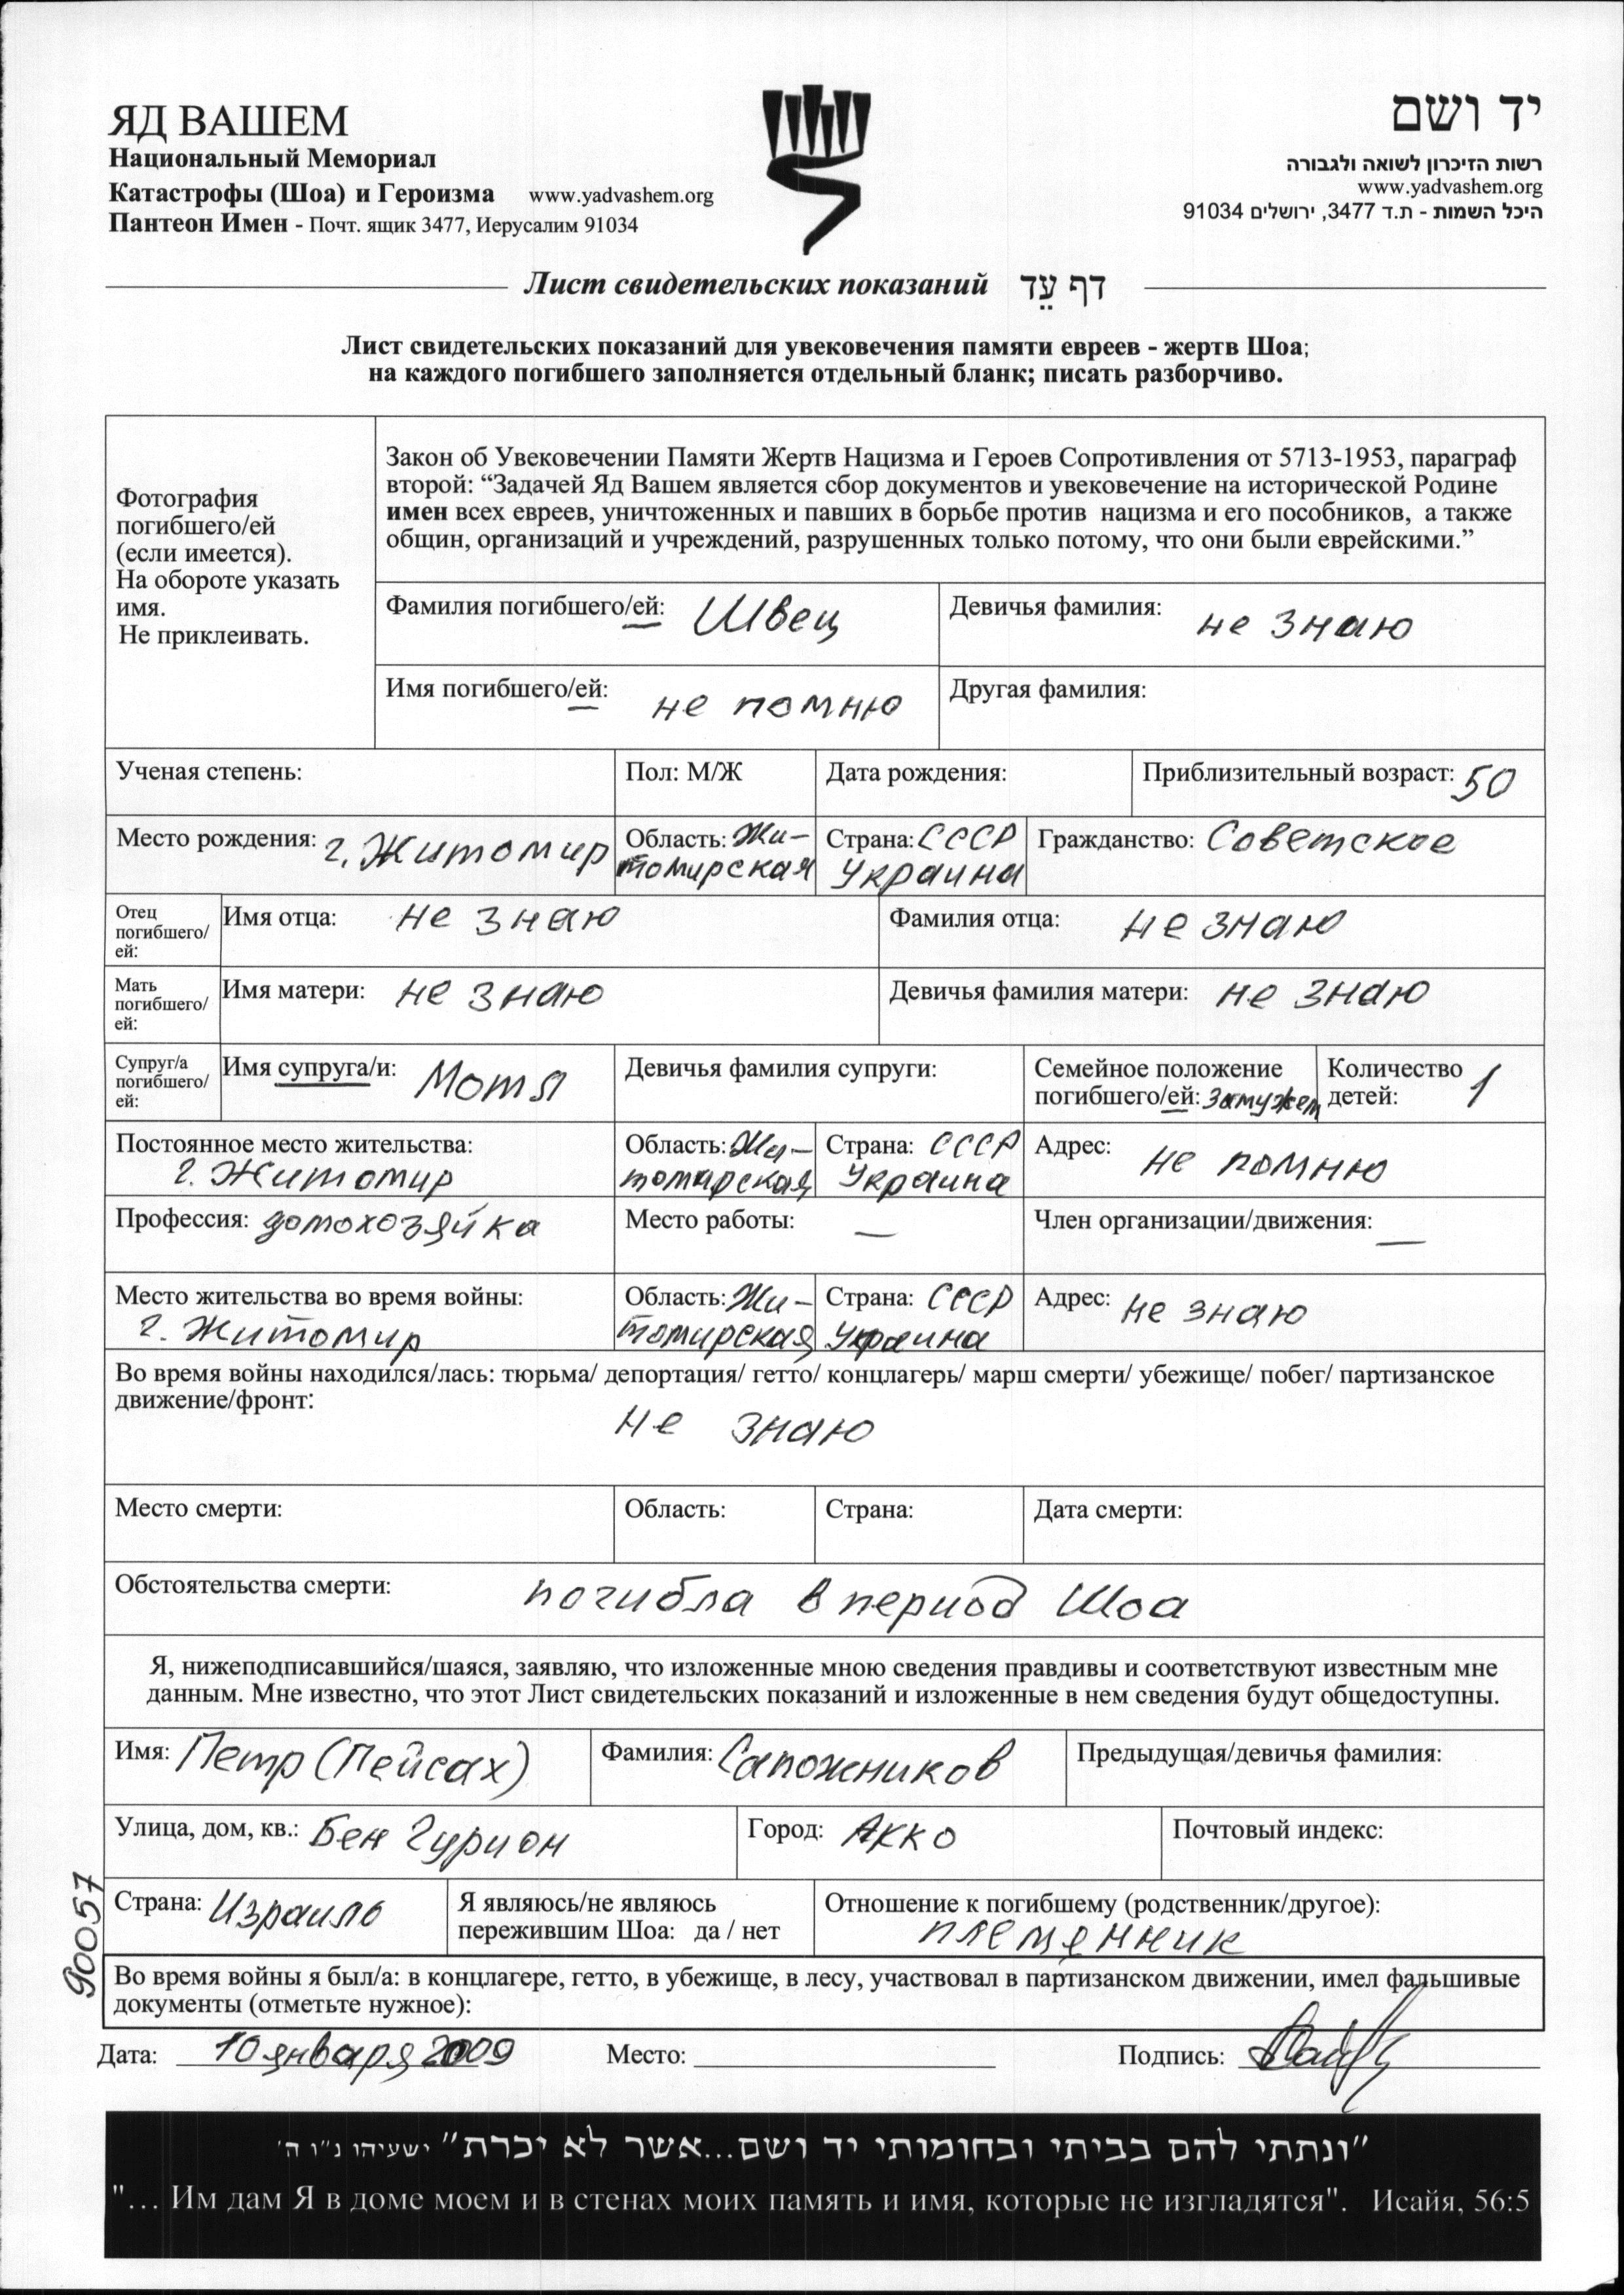 ЯД ВАШЕМ
Национальный Мемориал
Катастрофы (Шоа) и Героизма www.yadvashem.org
Пантеон Имен - Почт. ящик 3477, Иерусалим 91034
יד ושם
רשות הזיכרון לשואה ולגבורה
www.yadvashem.org
היכל השמות - ת.ד 3477, ירושלים 91034
Лист свидетельских показаний דף עֵד
Лист свидетельских показаний для увековечения памяти евреев - жертв Шоа;
на каждого погибшего заполняется отдельный бланк; писать разборчиво.
Фотография
погибшего/ей
(если имеется).
На обороте указать
имя.
Не приклеивать.
Закон об Увековечении Памяти Жертв Нацизма и Героев Сопротивления от 5713-1953, параграф
второй: “Задачей Яд Вашем является сбор документов и увековечение на исторической Родине
имен всех евреев, уничтоженных и павших в борьбе против нацизма и его пособников, а также
общин, организаций и учреждений, разрушенных только потому, что они были еврейскими.”
Фамилия погибшего/ей: Швец
Девичья фамилия: не знаю
Имя погибшего/ей: не помню
Другая фамилия:
Ученая степень:
Пол: М/Ж
Дата рождения:
Приблизительный возраст: 50
Место рождения: г. Житомир
Область: Жи-
томирская
Страна: СССР
Украина
Гражданство: Советское
Отец
погибшего/
ей:
Имя отца: не знаю
Фамилия отца: не знаю
Мать
погибшего/
ей:
Имя матери: не знаю
Девичья фамилия матери: не знаю
Супруг/а
погибшего/
ей:
Имя супруга/и: Мотя
Девичья фамилия супруги:
Семейное положение
погибшего/ей: замужем
Количество
детей: 1
Постоянное место жительства:
г. Житомир
Область: Жи-
томирская
Страна: СССР
Украина
Адрес: не помню
Профессия: домохозяйка
Место работы: —
Член организации/движения: —
Место жительства во время войны:
г. Житомир
Область: Жи-
томирская
Страна: СССР
Украина
Адрес: не знаю
Во время войны находился/лась: тюрьма/ депортация/ гетто/ концлагерь/ марш смерти/ убежище/ побег/ партизанское
движение/фронт:
не знаю
Место смерти:
Область:
Страна:
Дата смерти:
Обстоятельства смерти: погибла в период Шоа
Я, нижеподписавшийся/шаяся, заявляю, что изложенные мною сведения правдивы и соответствуют известным мне
данным. Мне известно, что этот Лист свидетельских показаний и изложенные в нем сведения будут общедоступны.
Имя: Петр (Пейсах)
Фамилия: Сапожников
Предыдущая/девичья фамилия:
Улица, дом, кв.: Бен Гурион
Город: Акко
Почтовый индекс:
Страна: Израиль
Я являюсь/не являюсь
пережившим Шоа: да / нет
Отношение к погибшему (родственник/другое):
племянник
90057
Во время войны я был/а: в концлагере, гетто, в убежище, в лесу, участвовал в партизанском движении, имел фальшивые
документы (отметьте нужное):
Дата: 10 января 2009 Место: Подпись:
"ונתתי להם בביתי ובחומותי יד ושם...אשר לא יכרת" ישעיהו נ"ו ה'
"... Им дам Я в доме моем и в стенах моих память и имя, которые не изгладятся". Исайя, 56:5